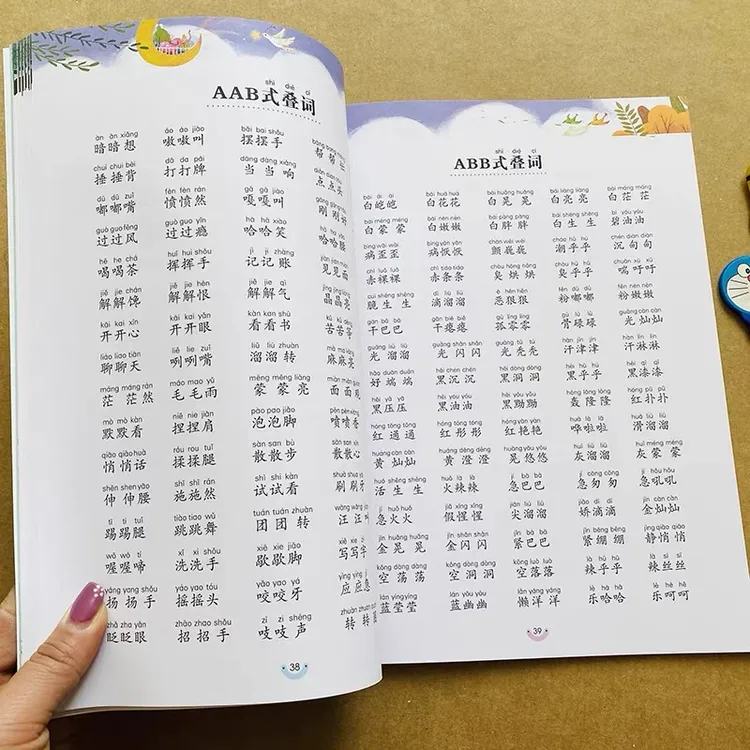 shì dié cí
AAB式叠词
àn àn xiǎng áo áo jiào bǎi bai shǒu
暗暗想 嗷嗷叫 摆摆手 帮帮忙
chuí chuí bèi dǎ dǎ pái dāng dāng xiǎng diǎn diǎn tóu
捶捶背 打打牌 当当响 点点头
dū dū zuǐ fèn fèn rán gā gā jiào
嘟嘟嘴 愤愤然 嘎嘎叫 刚刚好
guò guò fēng guò guò yǐn hā hā xiào
过过风 过过瘾 哈哈笑 哈哈镜
hē he chá huī hui shǒu jì jì zhàng
喝喝茶 挥挥手 记记账 见见面
jiě jie chán jiě jiě hèn jiě jiě qì
解解馋 解解恨 解解气 晶晶亮
kāi kāi xīn kāi kāi yǎn kàn kan shū
开开心 开开眼 看看书 苦苦等
liáo liao tiān liě lie zuǐ liū liū zhuàn
聊聊天 咧咧嘴 溜溜转 麻麻亮
máng máng rán máo mao yǔ mēng mēng liàng
茫茫然 毛毛雨 蒙蒙亮 面面观
mò mò kàn niē nie jiān pào pao jiǎo
默默看 捏捏肩 泡泡脚 喷喷香
qiāo qiāo huà róu rou tuǐ sàn san bù
悄悄话 揉揉腿 散散步 散散心
shēn shen yāo shī shī rán shì shi kàn
伸伸腰 施施然 试试看 刷刷牙
tī tī tuǐ tiào tiao wǔ tuán tuán zhuàn
踢踢腿 跳跳舞 团团转 汪汪叫
wō wō tí xǐ xi shǒu xiē xie jiǎo
喔喔啼 洗洗手 歇歇脚 写写字
yáng yang shǒu yáo yao tóu yǎo yao yá
扬扬手 摇摇头 咬咬牙 应应急
zhǎ zha yǎn zhāo zhao shǒu zī zī shēng
眨眨眼 招招手 吱吱声 转转
38
shì dié cí
ABB式叠词
bái ái ái bái huā huā bái huǎng huǎng bái liàng liàng bái máng máng
白皑皑 白花花 白晃晃 白亮亮 白茫茫
bái méng méng bái nèn nèn bái pàng pàng bái shēng shēng bì yóu yóu
白蒙蒙 白嫩嫩 白胖胖 白生生 碧油油
bìng wāi wāi bìng yān yān chàn wēi wēi cháo hū hū chén diàn diàn
病歪歪 病恹恹 颤巍巍 潮乎乎 沉甸甸
chì luǒ luǒ chì tiáo tiáo chòu hōng hōng chòu hū hū chuǎn xū xū
赤裸裸 赤条条 臭烘烘 臭乎乎 喘吁吁
cuì shēng shēng dī liū liū è hěn hěn fěn dū dū fěn nèn nèn
脆生生 滴溜溜 恶狠狠 粉嘟嘟 粉嫩嫩
gān bā bā gān biě biě gū líng líng gū lù lù guāng càn càn
干巴巴 干瘪瘪 孤零零 骨碌碌 光灿灿
guāng liū liū guāng shǎn shǎn guāng tū tū hàn jīn jīn hàn lín lín
光溜溜 光闪闪 光秃秃 汗津津 汗淋淋
hǎo duān duān hēi chén chén hēi dòng dòng hēi hū hū hēi qī qī
好端端 黑沉沉 黑洞洞 黑乎乎 黑漆漆
hēi yā yā hēi yóu yóu hēi yǒu yǒu hōng lóng lóng hóng pū pū
黑压压 黑油油 黑黝黝 轰隆隆 红扑扑
hóng tōng tōng hóng tóng tóng hóng yàn yàn huā lā lā huá liū liū
红通通 红彤彤 红艳艳 哗啦啦 滑溜溜
huáng càn càn huáng dēng dēng huàng yōu yōu huī liū liū huī méng méng
黄灿灿 黄澄澄 晃悠悠 灰溜溜 灰蒙蒙
huó shēng shēng huǒ là là jí bā bā jí cōng cōng jí hǒu hǒu
活生生 火辣辣 急巴巴 急匆匆 急吼吼
jí huǒ huǒ jiǎ xīng xīng jiān liū liū jiāo dī dī jīn càn càn
急火火 假惺惺 尖溜溜 娇滴滴 金灿灿
jīn huǎng huǎng jīn shǎn shǎn jǐn bā bā jǐn bēng bēng jìng qiāo qiāo
金晃晃 金闪闪 紧巴巴 紧绷绷 静悄悄
kōng dàng dàng kōng dòng dòng kōng luò luò là hū hū là sī sī
空荡荡 空洞洞 空落落 辣乎乎 辣丝丝
lán yíng yíng lán yōu yōu lǎn yáng yáng lè hā hā lè hē hē
蓝莹莹 蓝幽幽 懒洋洋 乐哈哈 乐呵呵
39